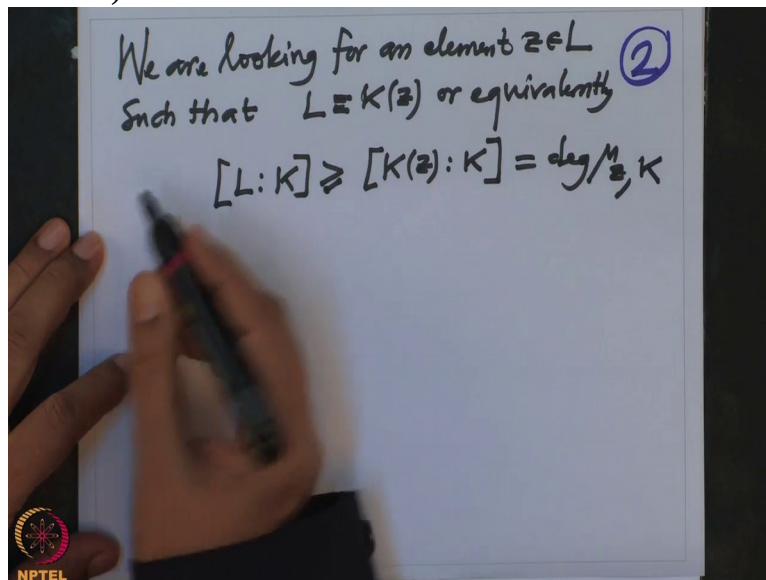 We are looking for an element z∈L ②
Such that L = K(z) or equivalently
[L:K] ⩾ [K(z):K] = deg μ_z,K
NPTEL